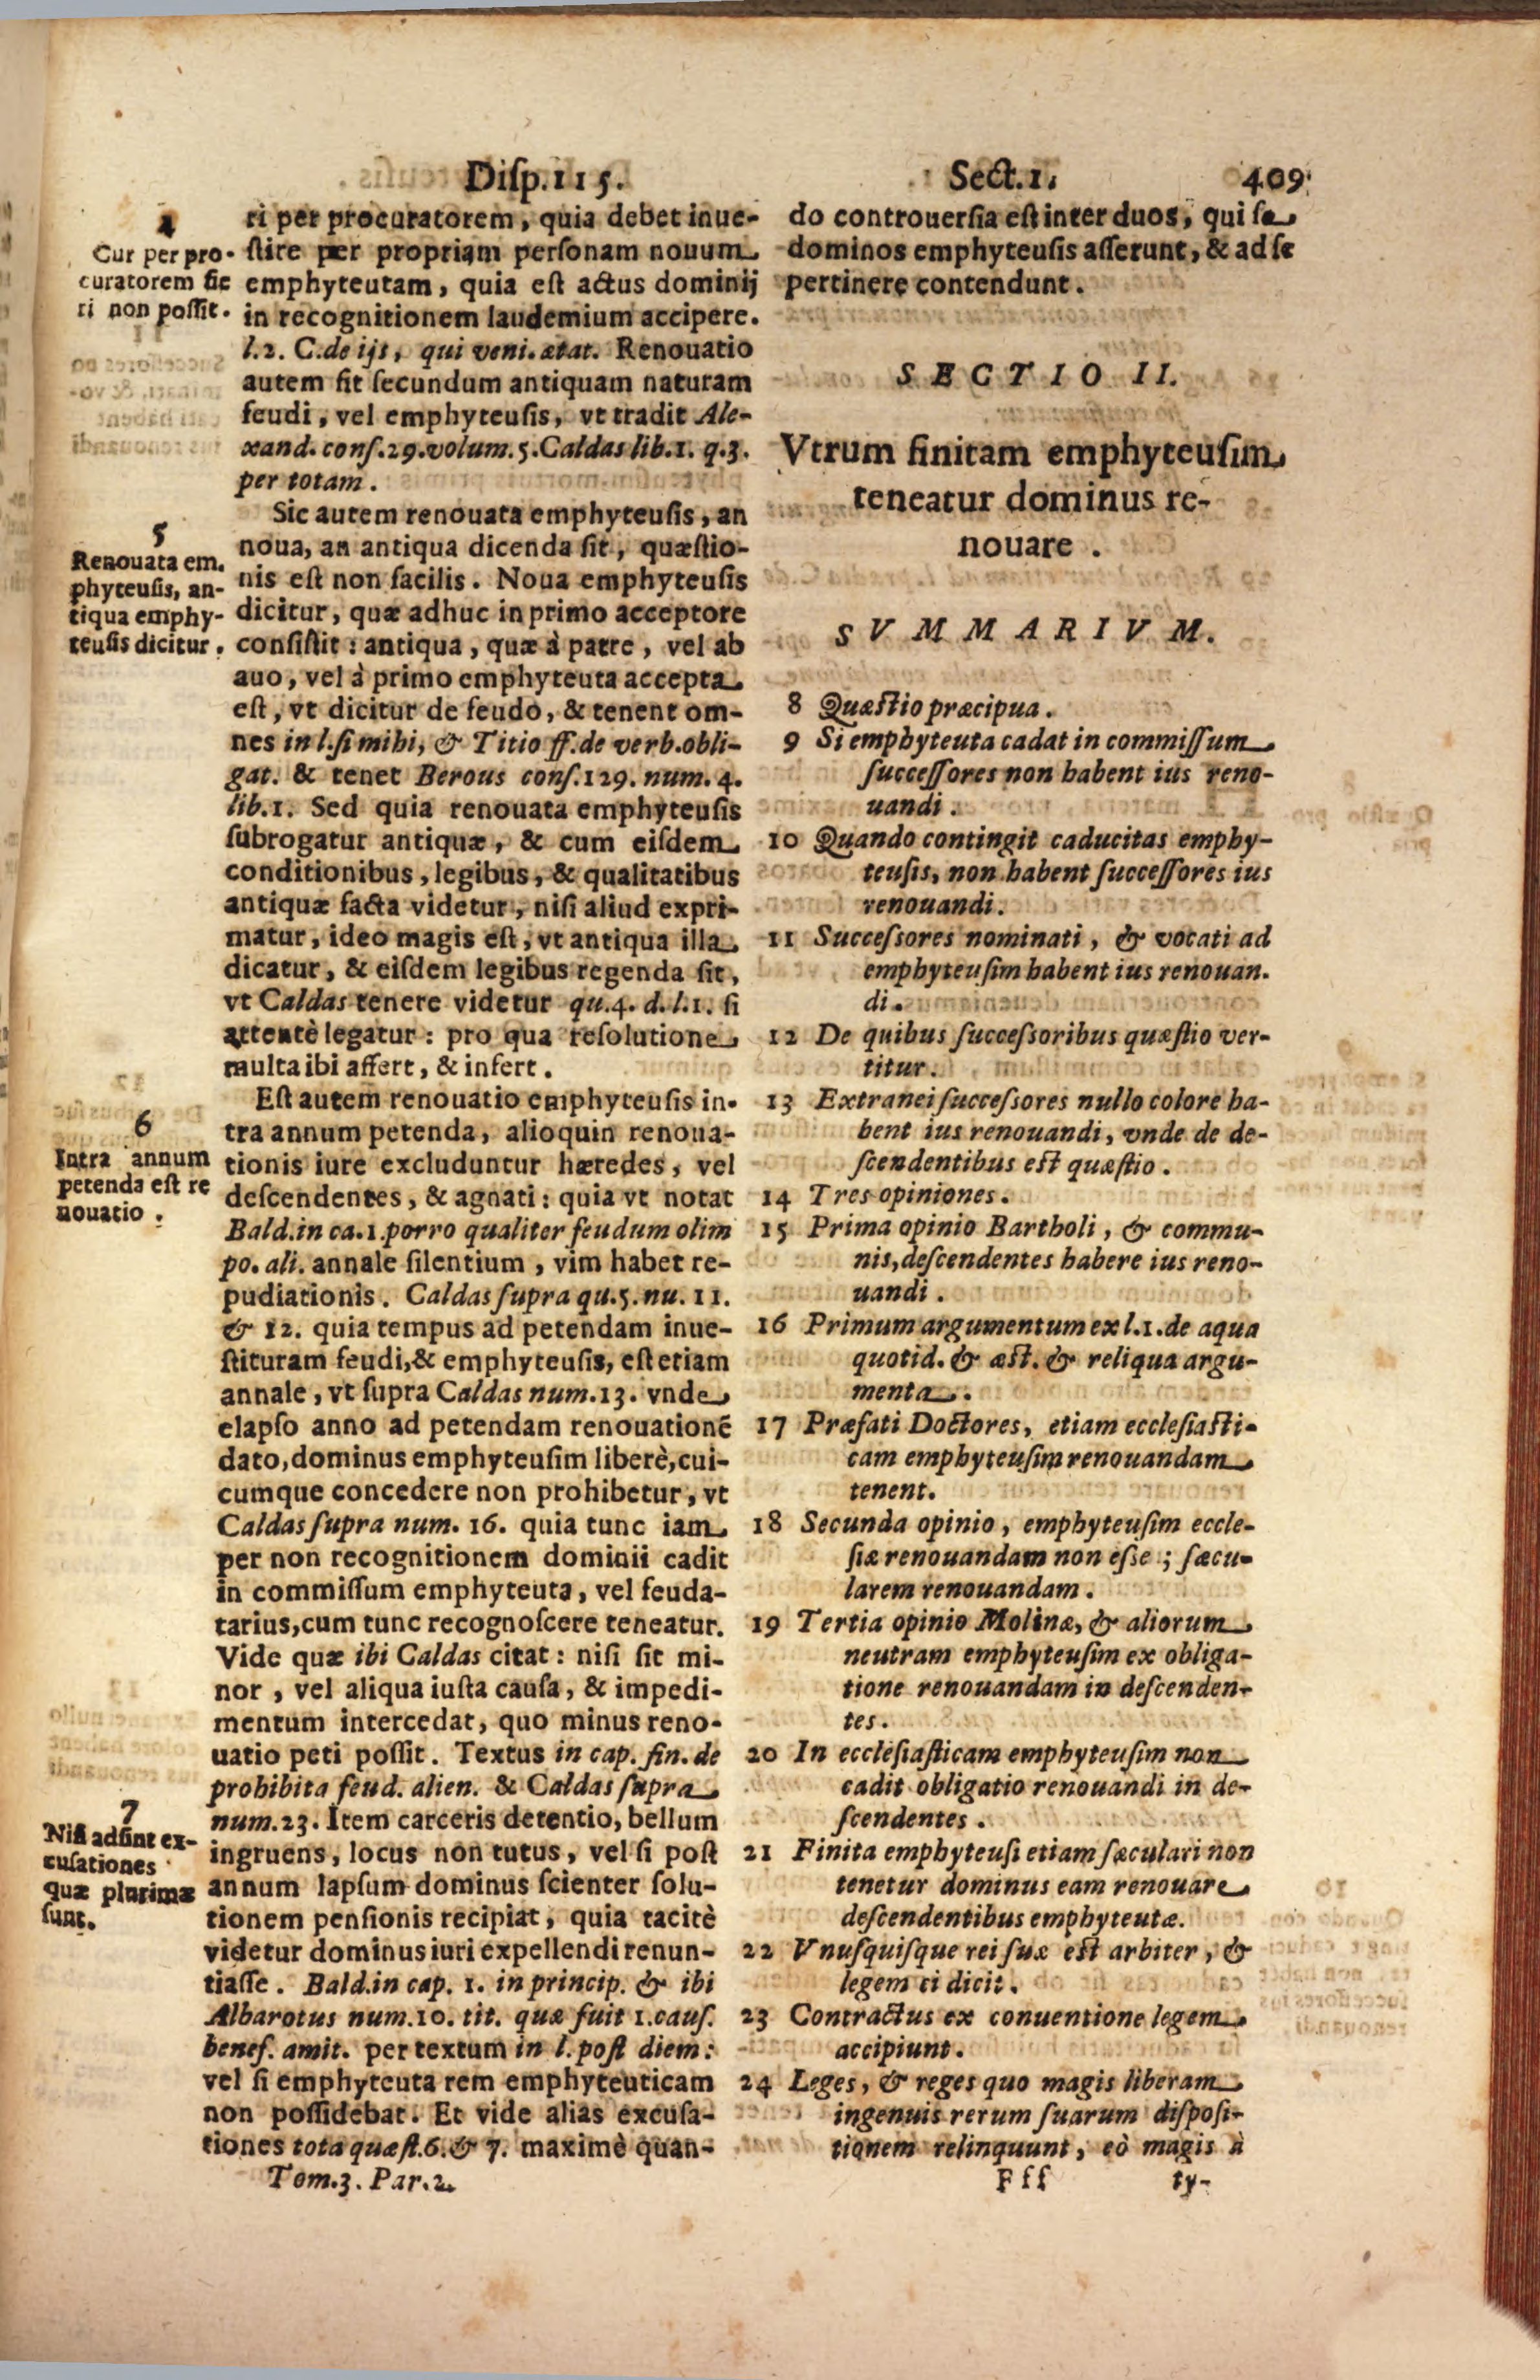 Diſp.115. Sect.1. 409
4
Cur per pro-
curatorem fie
ri non poſſit.
ri per procuratorem, quia debet inue-
ſtire per propriam perſonam nouum
emphyteutam, quia eſt actus dominij
in recognitionem laudemium accipere.
l.2. C.de ijs, qui veni.ætat. Renouatio
autem fit ſecundum antiquam naturam
feudi, vel emphyteuſis, vt tradit Ale-
xand. conſ.29.volum.5.Caldas lib.1. q.3.
per totam.
5
Renouata em.
phyteuſis, an-
tiqua emphy-
teuſis dicitur.
Sic autem renouata emphyteuſis, an
noua, an antiqua dicenda ſit, quæſtio-
nis eſt non facilis. Noua emphyteuſis
dicitur, quæ adhuc in primo acceptore
conſiſtit: antiqua, quæ à patre, vel ab
auo, vel à primo emphyteuta accepta
eſt, vt dicitur de feudo, & tenent om-
nes in l.ſi mihi, & Titio ff.de verb.obli-
gat. & tenet Berous conſ.129. num. 4.
lib.1. Sed quia renouata emphyteuſis
ſubrogatur antiquæ, & cum eiſdem
conditionibus, legibus, & qualitatibus
antiquæ facta videtur, niſi aliud expri-
matur, ideo magis eſt, vt antiqua illa
dicatur, & eiſdem legibus regenda ſit,
vt Caldas tenere videtur qu.4. d. l.1. ſi
attentè legatur: pro qua reſolutione
multa ibi affert, & infert.
6
Intra annum
petenda eſt re
nouatio.
Eſt autem renouatio emphyteuſis in-
tra annum petenda, alioquin renoua-
tionis iure excluduntur hæredes, vel
deſcendentes, & agnati: quia vt notat
Bald.in ca.1.porro qualiter feudum olim
po. ali. annale ſilentium, vim habet re-
pudiationis. Caldas ſupra qu.5. nu. 11.
& 12. quia tempus ad petendam inue-
ſtituram feudi,& emphyteuſis, eſt etiam
annale, vt ſupra Caldas num.13. vnde
elapſo anno ad petendam renouationē
dato,dominus emphyteuſim liberè,cui-
cumque concedere non prohibetur, vt
Caldas ſupra num. 16. quia tunc iam
per non recognitionem dominii cadit
in commiſſum emphyteuta, vel feuda-
tarius,cum tunc recognoſcere teneatur.
Vide quæ ibi Caldas citat: niſi ſit mi-
nor, vel aliqua iuſta cauſa, & impedi-
mentum intercedat, quo minus reno-
uatio peti poſſit. Textus in cap. fin. de
prohibita feud. alien. & Caldas ſupra
7
Niſi adſint ex-
cuſationes
quæ plurimæ
ſunt.
num.23. Item carceris detentio, bellum
ingruens, locus non tutus, vel ſi poſt
annum lapſum dominus ſcienter ſolu-
tionem penſionis recipiat, quia tacitè
videtur dominus iuri expellendi renun-
tiaſſe. Bald.in cap. 1. in princip. & ibi
Albarotus num.10. tit. quæ fuit 1.cauſ.
benef. amit. per textum in l. poſt diem:
vel ſi emphyteuta rem emphyteuticam
non poſſidebat. Et vide alias excuſa-
tiones tota quæſt.6.& 7. maximè quan-
Tom.3. Par.2.
do controuerſia eſt inter duos, qui ſe
dominos emphyteuſis aſſerunt, & ad ſe
pertinere contendunt.
SECTIO II.
Vtrum finitam emphyteuſim
teneatur dominus re-
nouare.
SVMMARIVM.
8 Quæſtio præcipua.
9 Si emphyteuta cadat in commiſſum
ſucceſſores non habent ius reno-
uandi.
10 Quando contingit caducitas emphy-
teuſis, non habent ſucceſſores ius
renouandi.
11 Succeſſores nominati, & vocati ad
emphyteuſim habent ius renouan.
di.
12 De quibus ſucceſſoribus quæſtio ver-
titur.
13 Extranei ſucceſſores nullo colore ha-
bent ius renouandi, vnde de de-
ſcendentibus eſt quæſtio.
14 Tres opiniones.
15 Prima opinio Bartholi, & commu-
nis,deſcendentes habere ius reno-
uandi.
16 Primum argumentum ex l.1.de aqua
quotid. & æſt. & reliqua argu-
menta.
17 Præfati Doctores, etiam eccleſiaſti-
cam emphyteuſim renouandam
tenent.
18 Secunda opinio, emphyteuſim eccle-
ſiæ renouandam non eſſe; ſæcu-
larem renouandam.
19 Tertia opinio Molinæ, & aliorum
neutram emphyteuſim ex obliga-
tione renouandam in deſcenden-
tes.
20 In eccleſiaſticam emphyteuſim non
cadit obligatio renouandi in de-
ſcendentes.
21 Finita emphyteuſi etiam ſæculari non
tenetur dominus eam renouare
deſcendentibus emphyteutæ.
22 Vnuſquiſque rei ſuæ eſt arbiter, &
legem ei dicit.
23 Contractus ex conuentione legem
accipiunt.
24 Leges, & reges quo magis liberam
ingenuis rerum ſuarum diſpoſi-
tionem relinquunt, eò magis à
Fff ty-